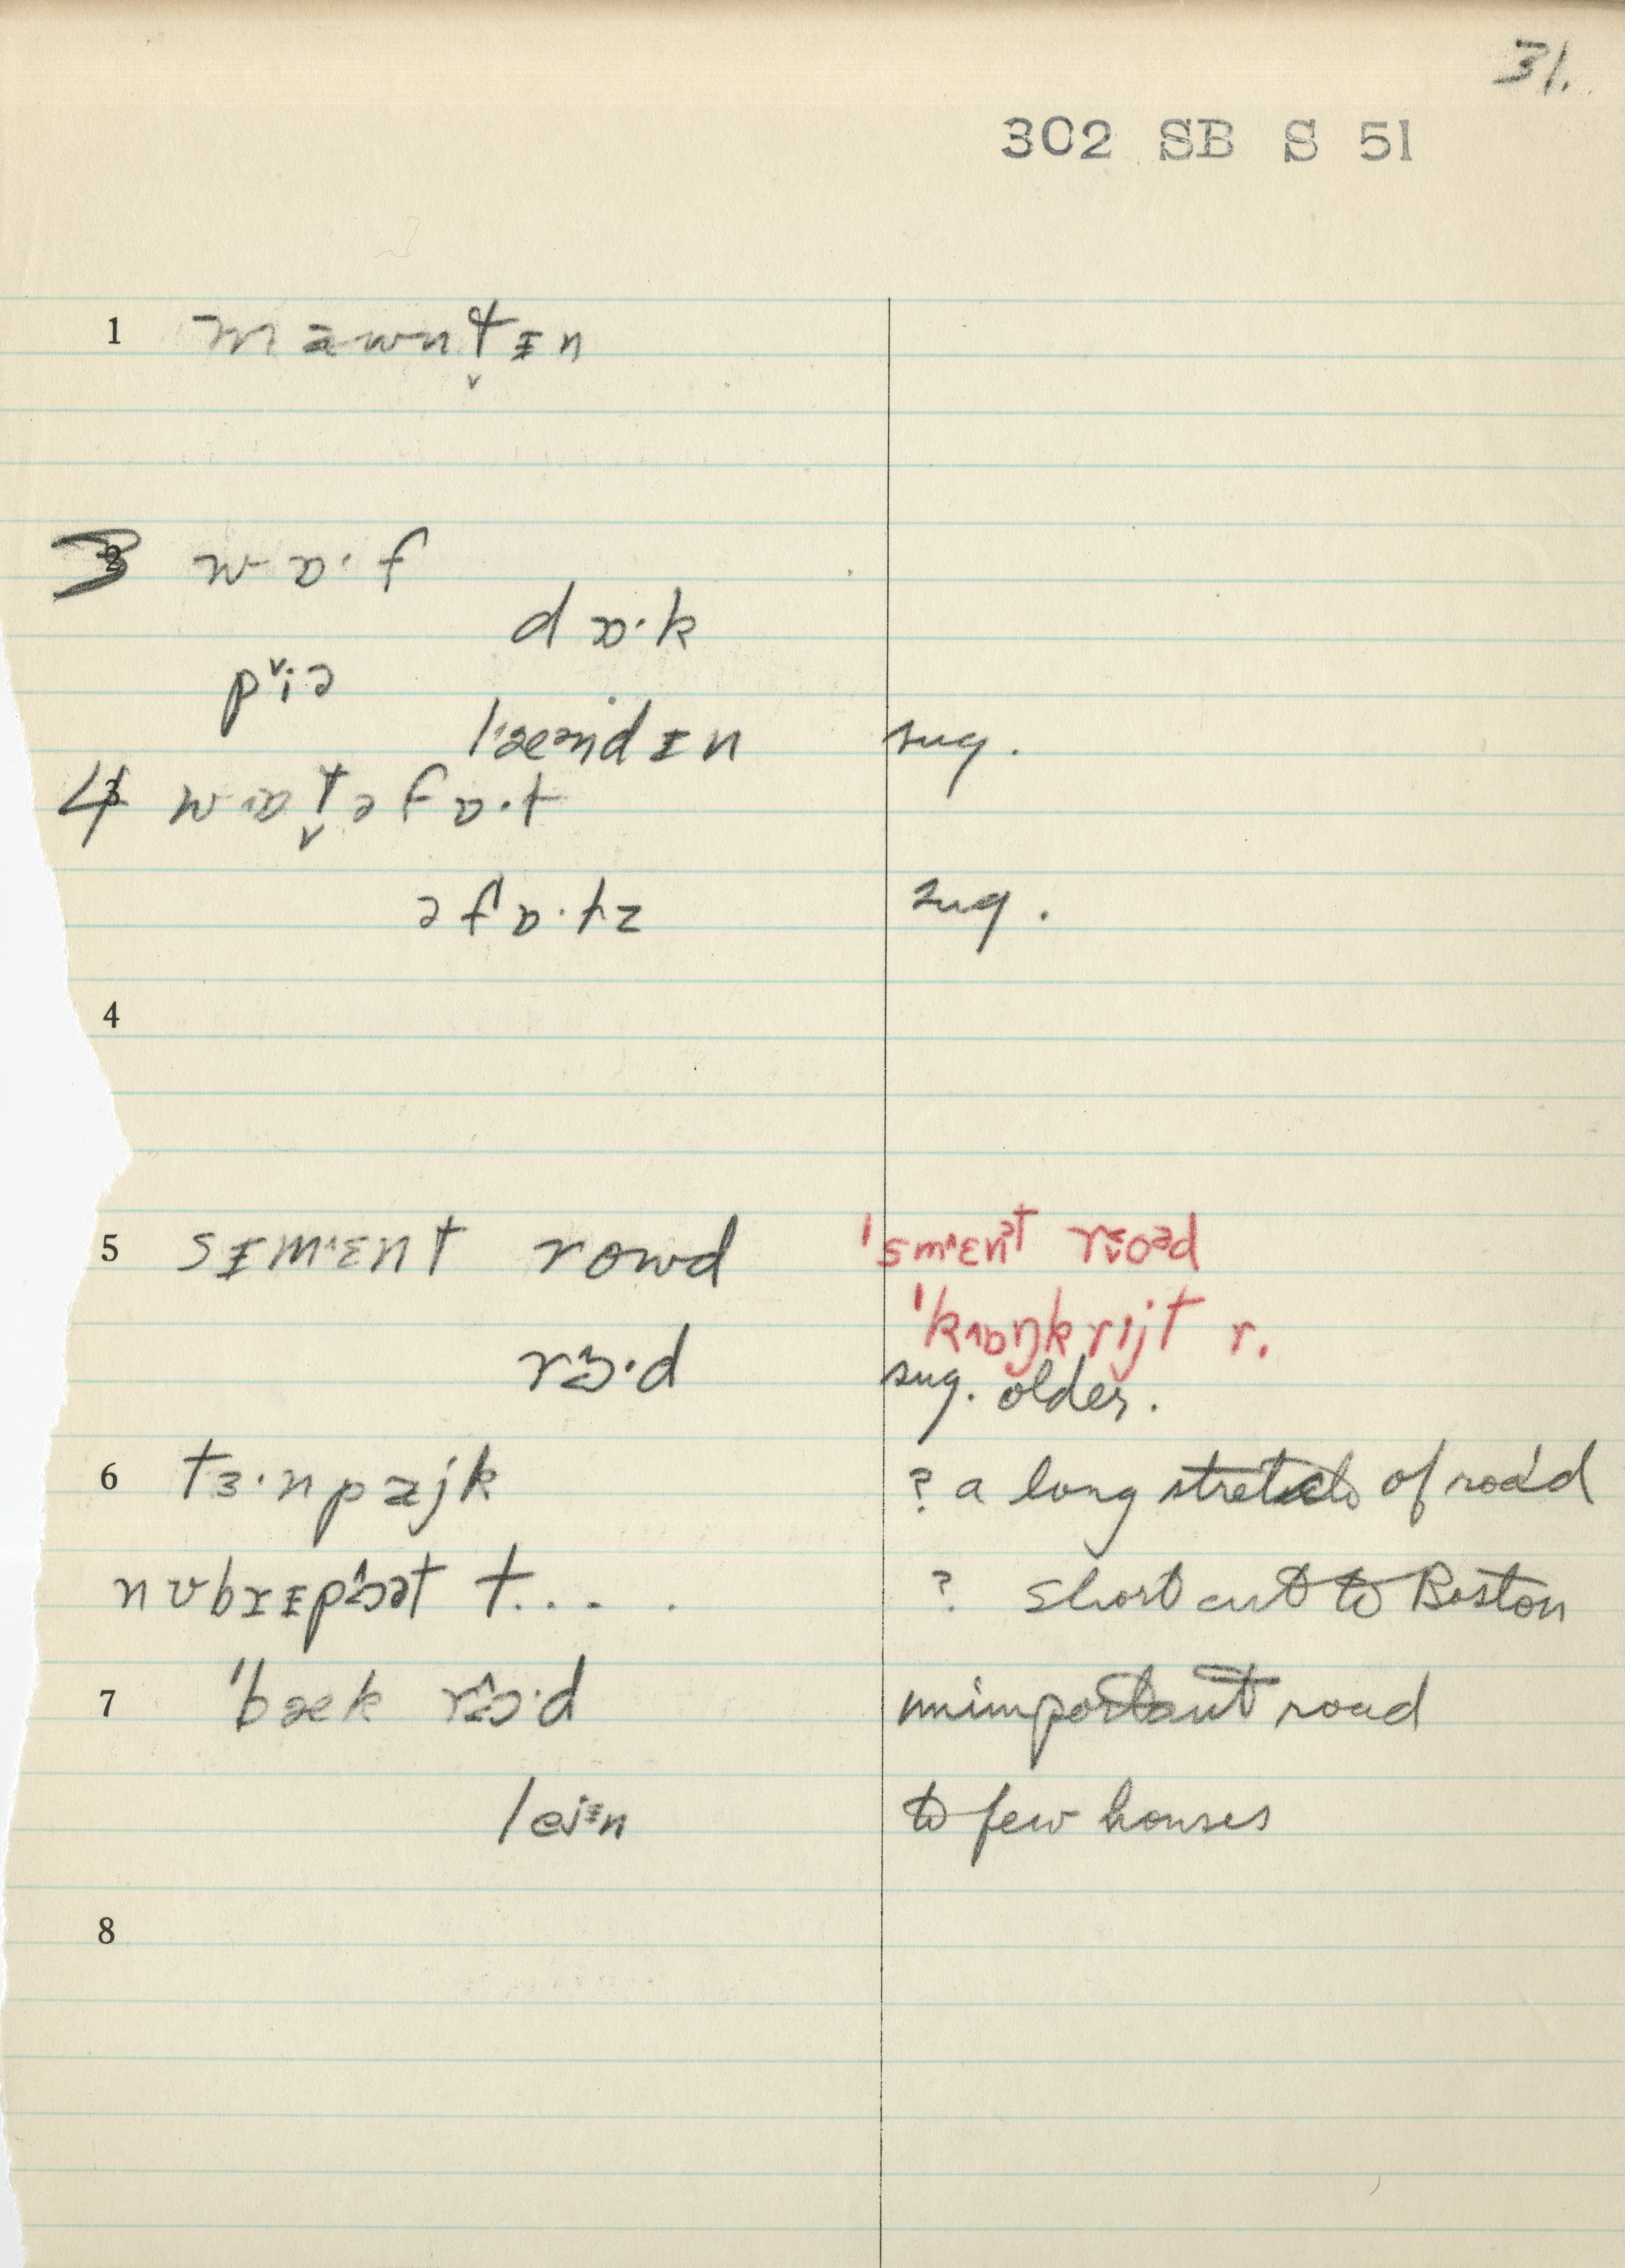 31.
302 SB S 51
1 mawnt̬ɪn
3 2 wɒ·f
dɒ·k
pi˅ə
lˈændɪn sug.
4 3 wɒt̬əfɒ·t
əfɒ·tz sug.
4
5 sɪmˈɛnt rowd ˈsmˈɛnt roəd
ˈkɒŋkrijt r.
rɔ·d sug. older.
6 tɜ·npajk ? a long stretch of road
t.... . ? short cut to Boston
7 ˈbæk rɔ·d unimportant road
lejn to few houses
8